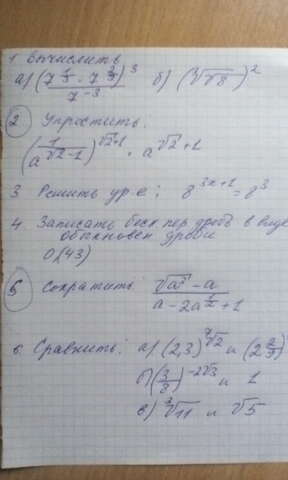 1 Вычислить
а) (7^(1/3) · 7^(2/3))^3 / 7^(-3) б) (∛√8)^2
2 Упростить.
(1/a^(√2-1))^(√2+1) · a^(√2+1)
3 Решить ур-е; 8^(3x+1) = 8^3
4 Записать беск пер дробь в виде
обыкновен дроби
0,(43)
5 Сократить
(√a - a)/(a - 2a^(1/2) + 1)
6. Сравнить: а) (2,3)^√2 и (2 2/9)
б) (3/8)^(-2√3) и 1
в) ∛11 и √5